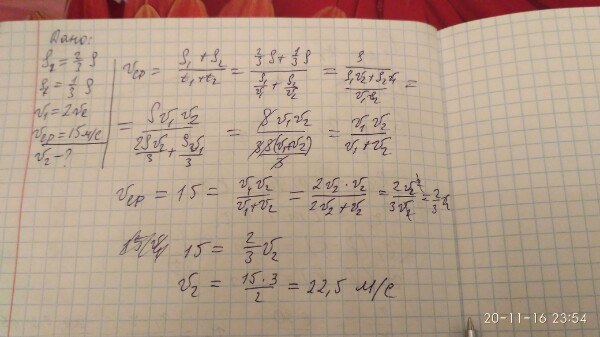 Дано:
S₂ = 2/3 S
S₁ = 1/3 S
v₁ = 2v₂
vср = 15 м/с
v₂ - ?
vср = (S₁ + S₂)/(t₁ + t₂) = (2/3 S + 1/3 S)/(S₁/v₁ + S₂/v₂) = S/((S₁v₂ + S₂v₁)/(v₁·v₂)) =
= Sv₁v₂/(2Sv₂/3 + Sv₁/3) = = v₁v₂/(v₁+v₂)
vср = 15 = v₁v₂/(v₁+v₂) = 2v₂·v₂/(2v₂+v₂) = 2v₂²/3v₂ = 2/3 v₂
15 = 2/3 v₂
v₂ = 15·3/2 = 22,5 м/с
20-11-16 23:54